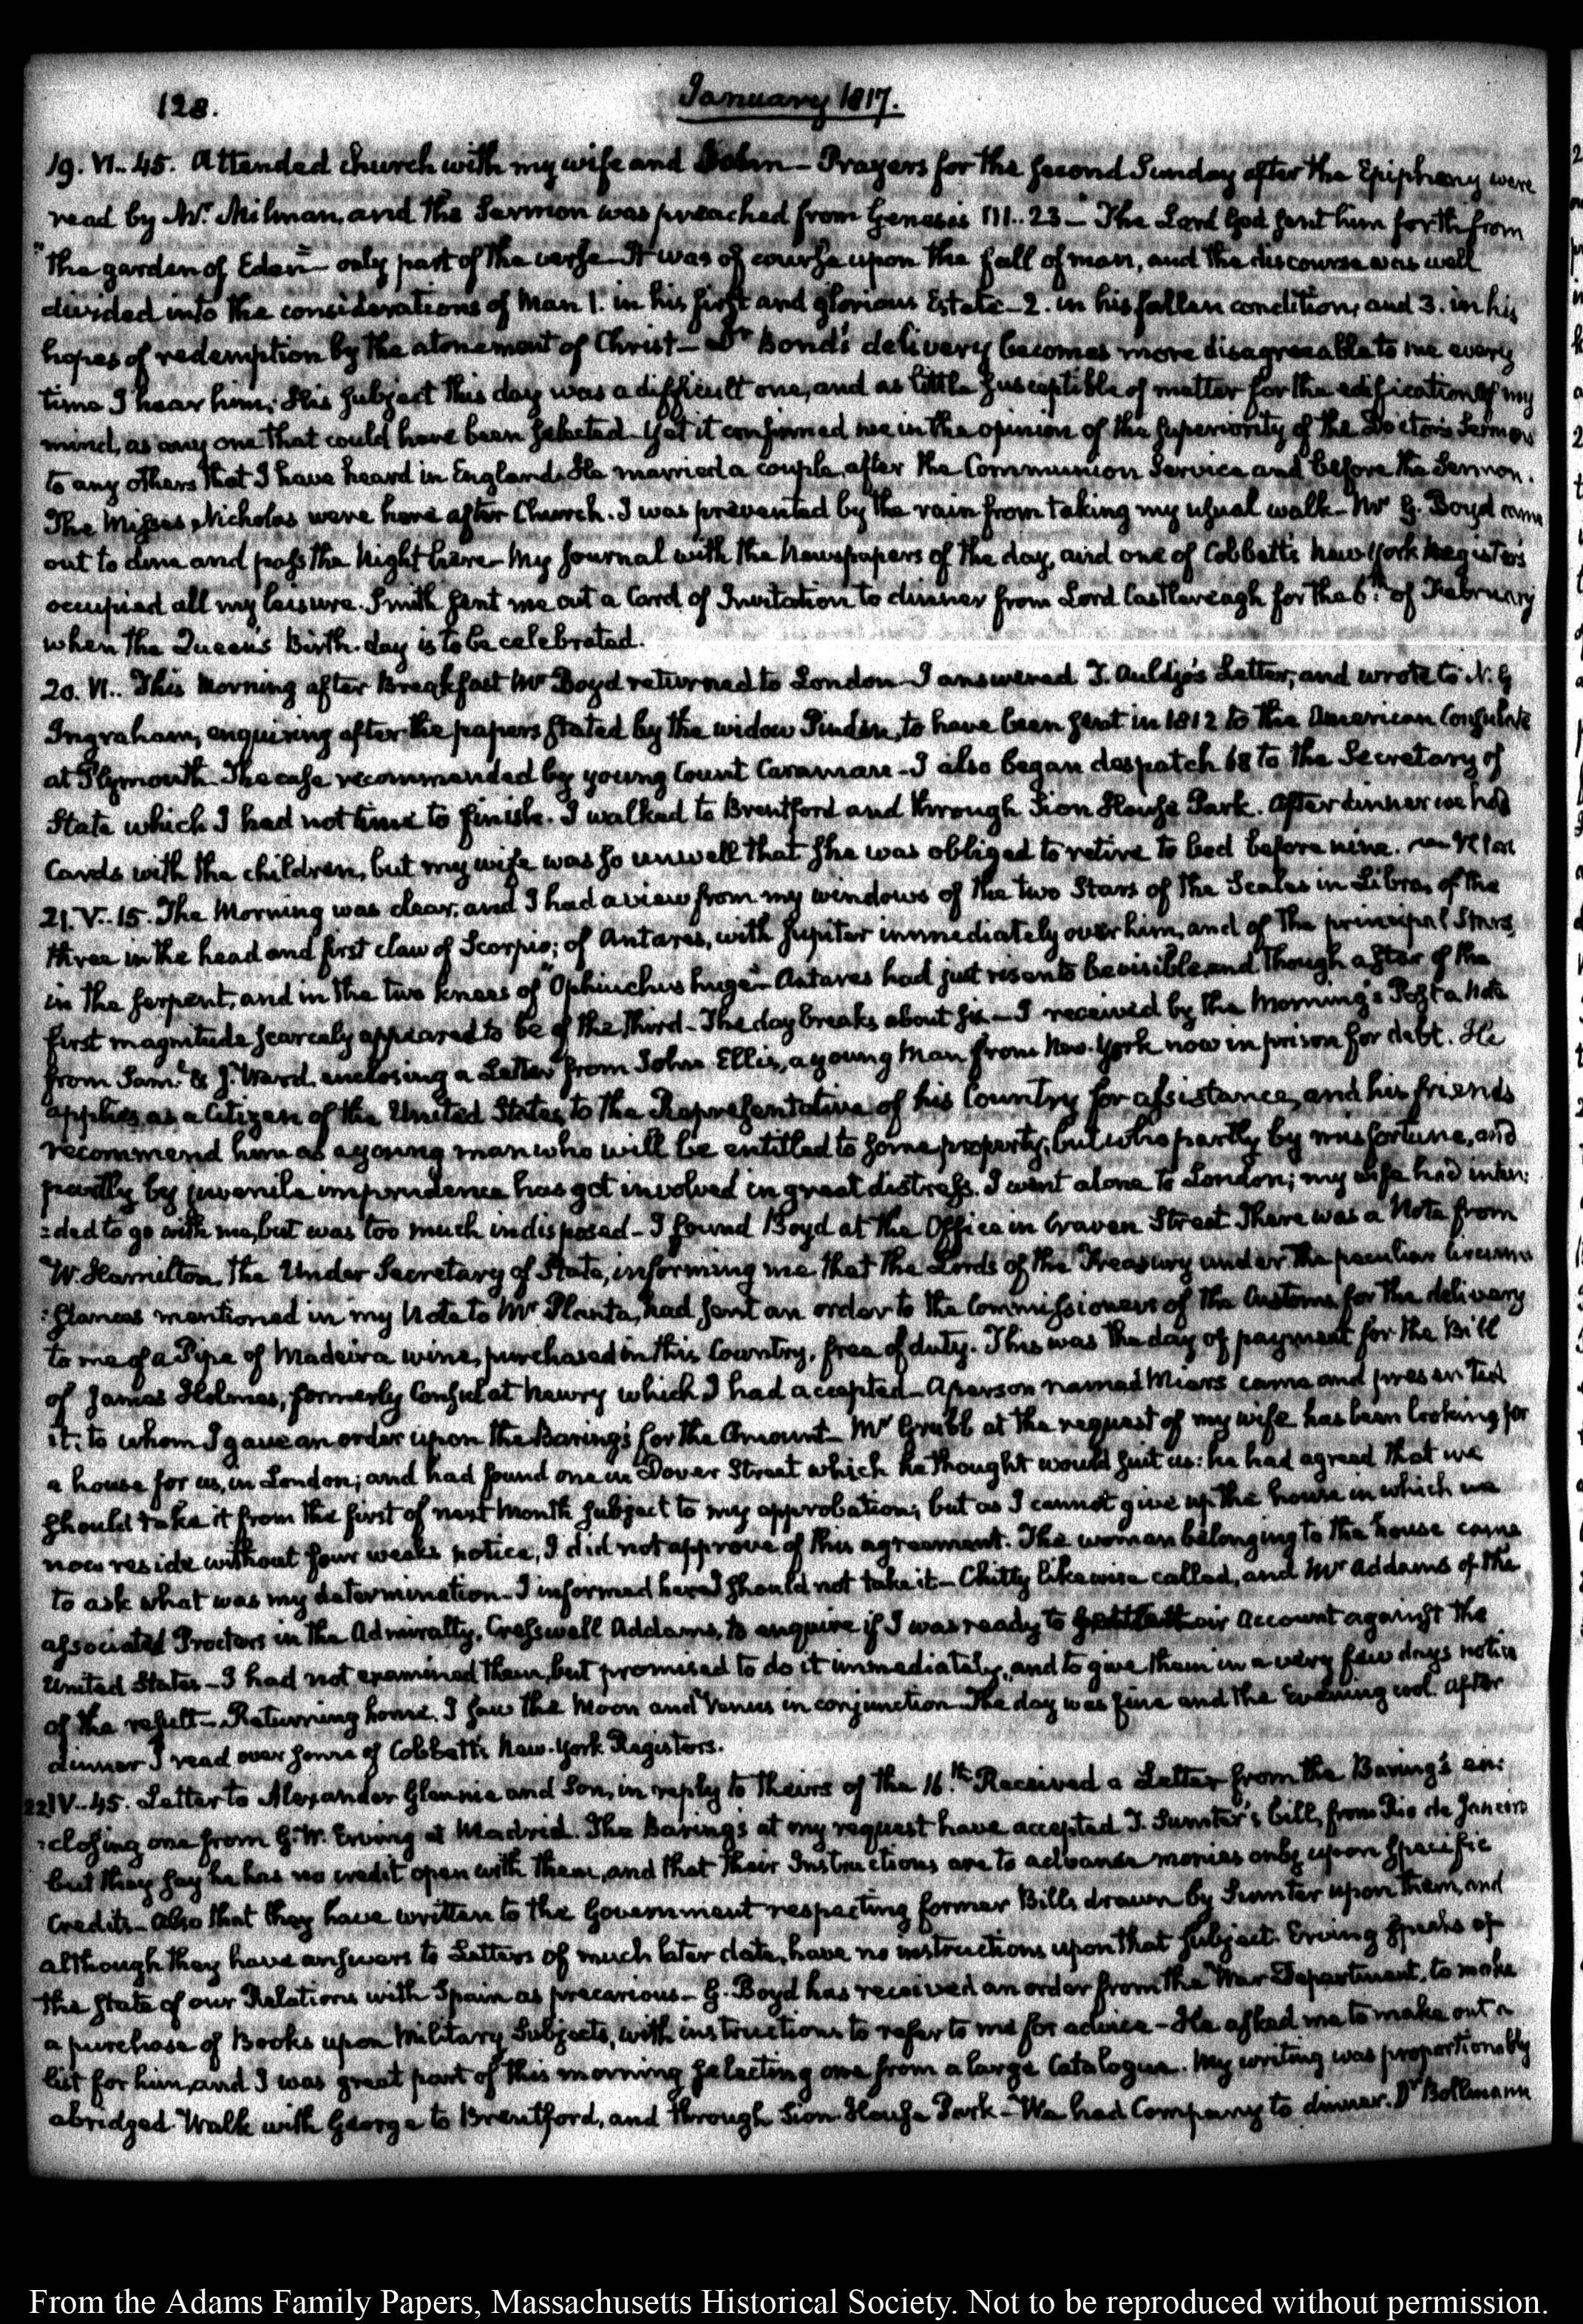 128.
January 1817.
19. VI.. 45. Attended church with my wife and John — Prayers for the second Sunday after the Epiphany were
read by Mr. Milman, and the Sermon was preached from Genesis III.. 23 — "The Lord God sent him forth from
"the garden of Eden" — only part of the verse — It was of course upon the fall of man, and the discourse was well
divided into the considerations of Man 1. in his first and glorious Estate — 2. in his fallen condition, and 3. in his
hopes of redemption by the atonement of Christ — Dr Bond's delivery becomes more disagreeable to me every
time I hear him; His subject this day was a difficult one, and as little susceptible of matter for the edification of my
mind, as any one that could have been selected — Yet it confirmed me in the opinion of the superiority of the Doctor's Sermons
to any others that I have heard in England. He married a couple, after the Communion Service and before the Sermon.
The Misses Nicholas were here after Church. I was prevented by the rain from taking my usual walk — Mr G. Boyd came
out to dine and pass the Night here — My Journal with the Newspapers of the day, and one of Cobbett's New York Registers
occupied all my leisure. Smith sent me out a Card of Invitation to dinner from Lord Castlereagh for the 6th. of February
when the Queen's Birth-day is to be celebrated.
20. VI.. This Morning after Breakfast Mr Boyd returned to London — I answered T. Auldjo's Letter, and wrote to N. G
Ingraham, enquiring after the papers stated by the widow Pinden, to have been sent in 1812 to the American Consulate
at Plymouth — The case recommended by young Count Caraman — I also began despatch 68 to the Secretary of
State which I had not time to finish. I walked to Brentford and through Sion House Park. After dinner we had
Cards with the children, but my wife was so unwell that she was obliged to retire to bed before nine.
21. V.. 15. The Morning was clear, and I had a view from my windows of the two Stars of the Scales in Libra, of the
three in the head and first claw of Scorpio; of Antares, with Jupiter immediately over him, and of the principal Stars,
in the serpent, and in the two knees of "Ophiuchus huge" — Antares had just risen to be visible, and though a star of the
first magnitude scarcely appeared to be of the third — The day breaks about six — I received by the Morning's Post a Note
from Saml. & J. Ward, enclosing a Letter from John Ellis, a young Man from New-York now in prison for debt. He
applies as a Citizen of the United States to the Representative of his Country for assistance, and his friends
recommend him as a young man who will be entitled to some property, but who partly by misfortune, and
partly by juvenile imprudence has got involved in great distress. I went alone to London; my wife had inten:
:ded to go with me, but was too much indisposed — I found Boyd at the Office in Craven Street. There was a Note from
W. Hamilton, the Under Secretary of State, informing me, that the Lords of the Treasury under the peculiar circum
:stances mentioned in my Note to Mr Planta, had sent an order to the Commissioners of the Customs for the delivery
to me of a Pipe of Madeira wine, purchased in this Country, free of duty. This was the day of payment for the Bill
of James Holmes, formerly Consul at Newry which I had accepted — A person named Miers came and presented
it; to whom I gave an order upon the Baring's for the Amount — Mr Grubb at the request of my wife has been looking for
a house for us, in London; and had found one in Dover Street which he thought would suit us: he had agreed that we
should take it from the first of next Month subject to my approbation; but as I cannot give up the house in which we
now reside without four weeks notice, I did not approve of this agreement. The woman belonging to the house came
to ask what was my determination — I informed her I should not take it — Chitty likewise called, and Mr Addams of the
associated Proctors in the Admiralty, Cresswell Addams, to enquire if I was ready to settle their Account against the
United States — I had not examined them, but promised to do it immediately, and to give them in a very few days notice
of the result — Returning home, I saw the Moon and Venus in conjunction — The day was fine and the Evening cool. After
dinner I read over some of Cobbett's New-York Registers.
22. IV.. 45. Letter to Alexander Glennie and Son, in reply to theirs of the 16.th Received a Letter from the Baring's en:
:closing one from G. W. Erving at Madrid. The Baring's at my request have accepted T. Sumter's bill, from Rio de Janeiro
but they say he has no credit open with them, and that their Instructions are to advance monies only upon specific
Credits — Also that they have written to the Government respecting former Bills drawn by Sumter upon them, and
although they have answers to Letters of much later date, have no instructions upon that subject. Erving speaks of
the state of our Relations with Spain as precarious — G. Boyd has received an order from the War Department, to make
a purchase of Books upon Military Subjects, with instructions to refer to me for advice — He asked me to make out a
list for him, and I was great part of this morning selecting one from a large Catalogue. My writing was proportionably
abridged. Walk with George to Brentford, and through Sion House Park — We had Company to dinner. Dr Bollmann
From the Adams Family Papers, Massachusetts Historical Society. Not to be reproduced without permission.